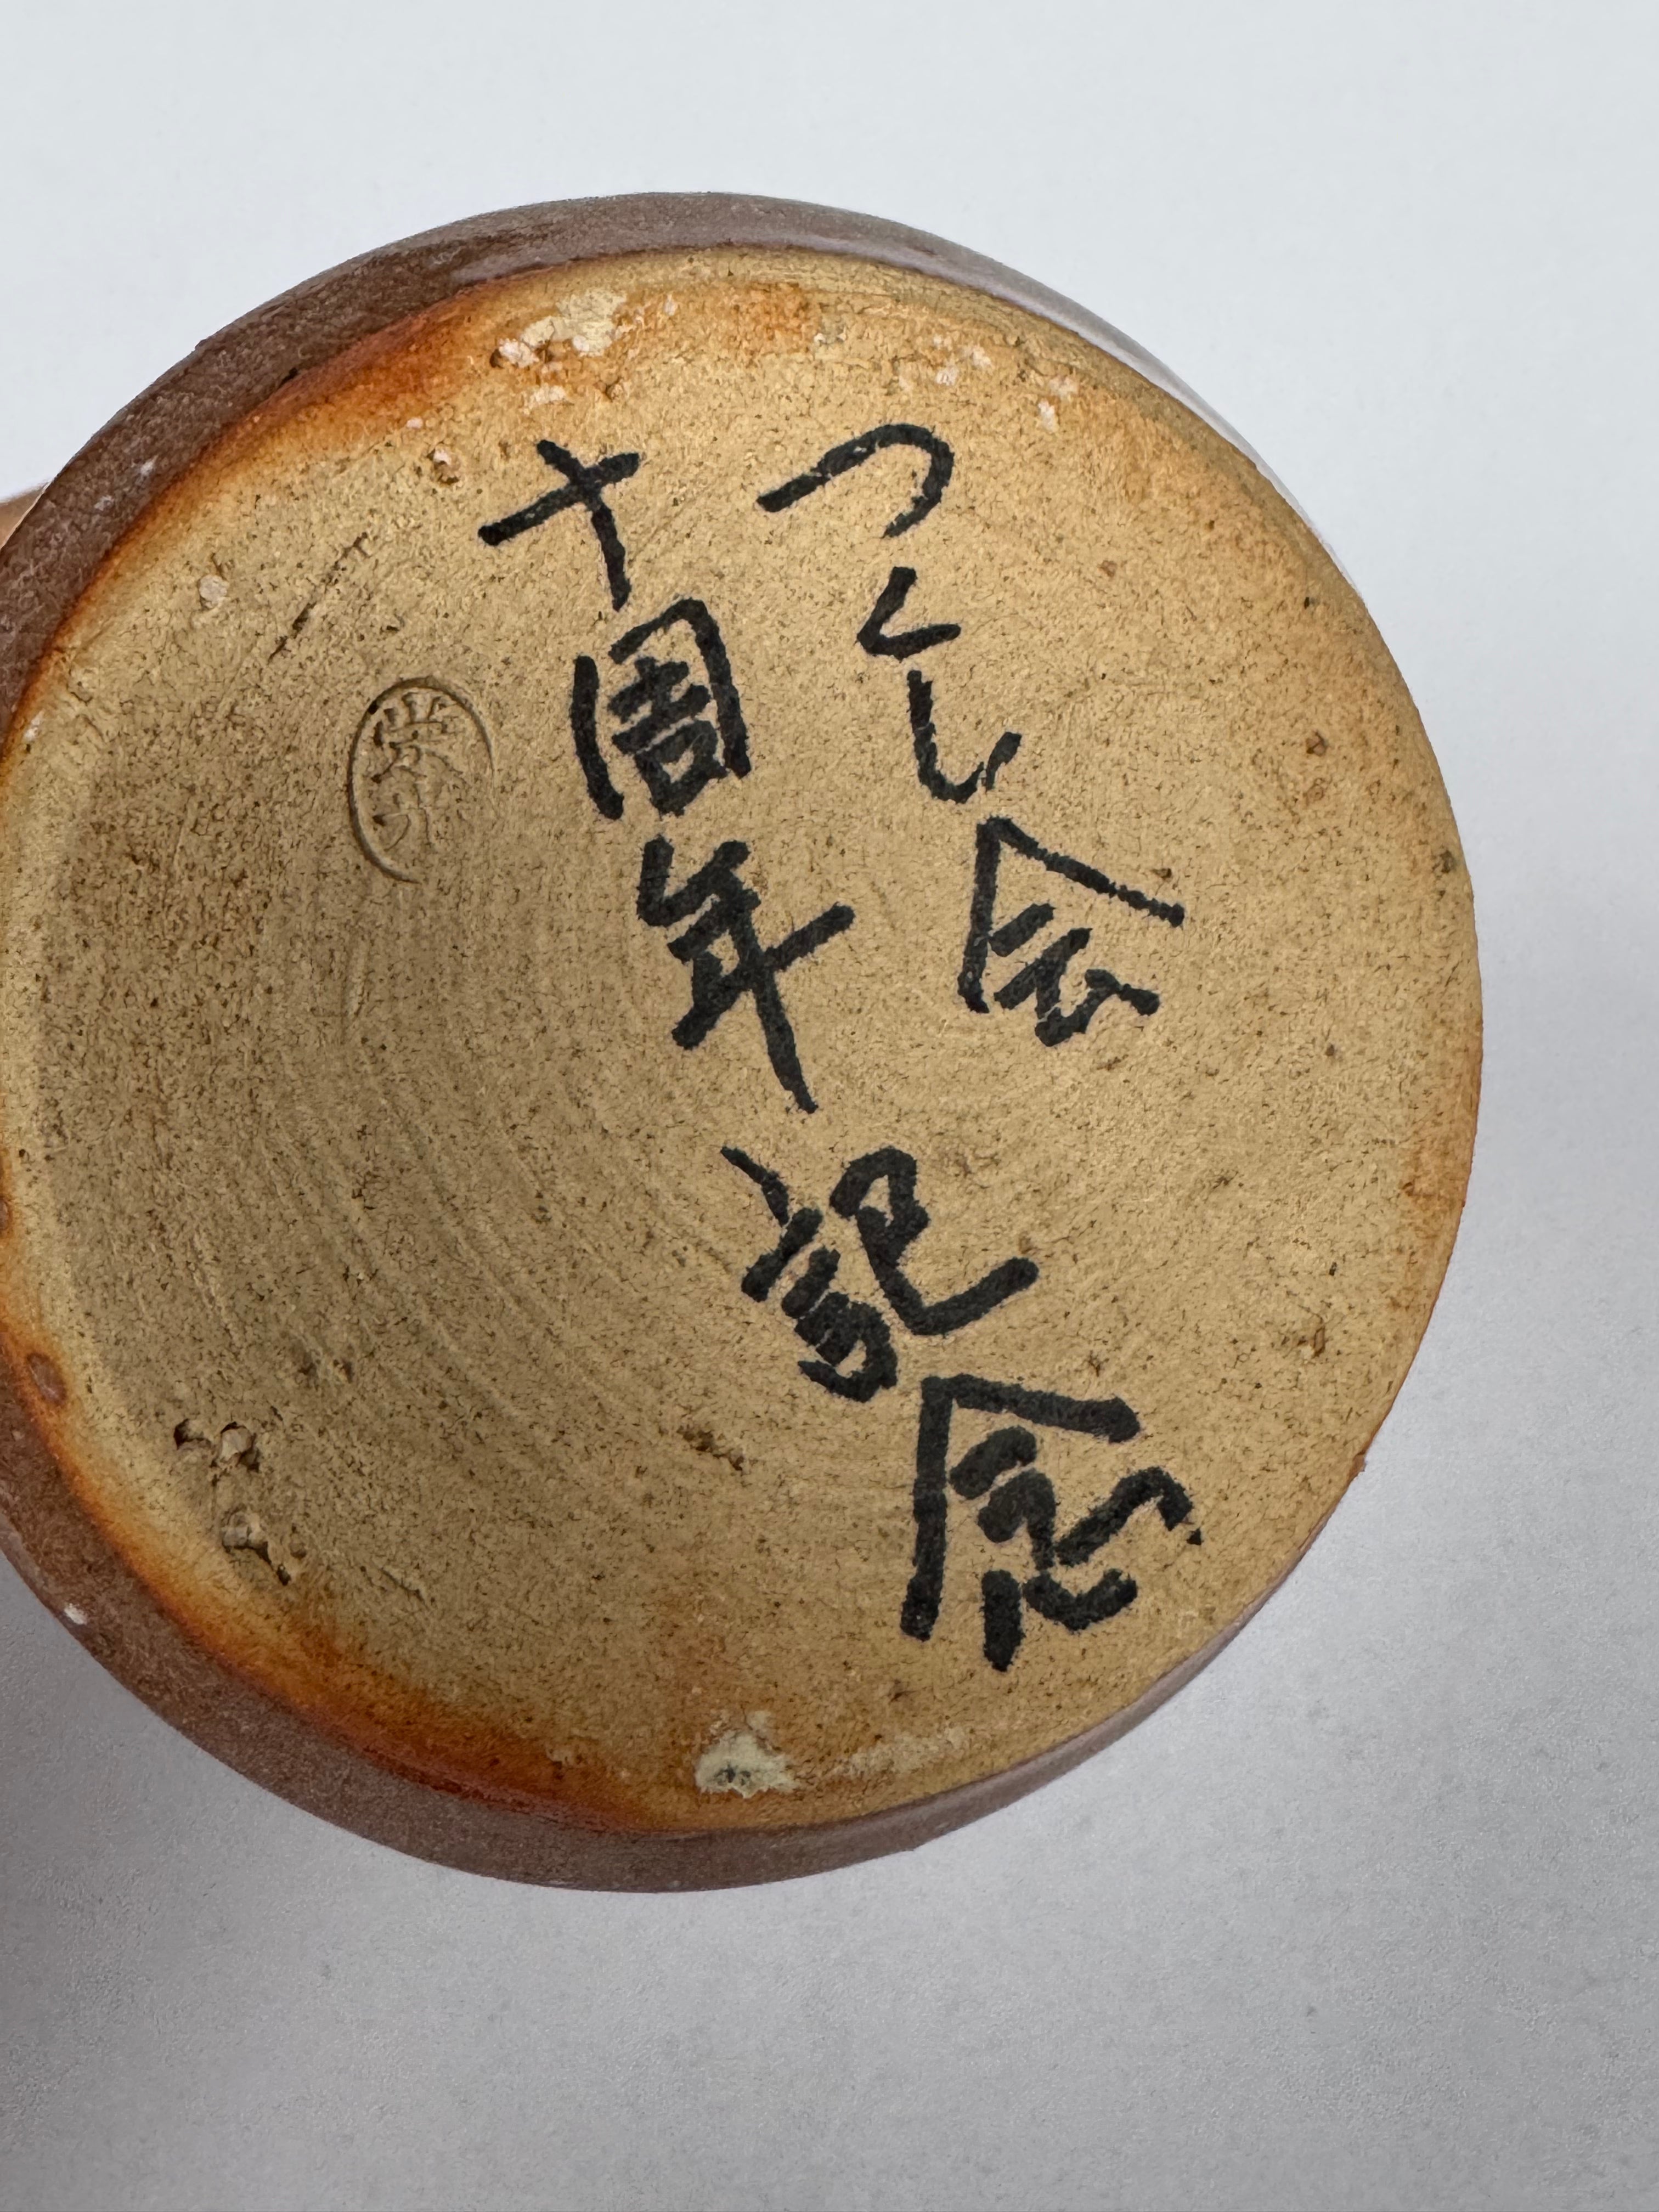 つくし会
十周年記念